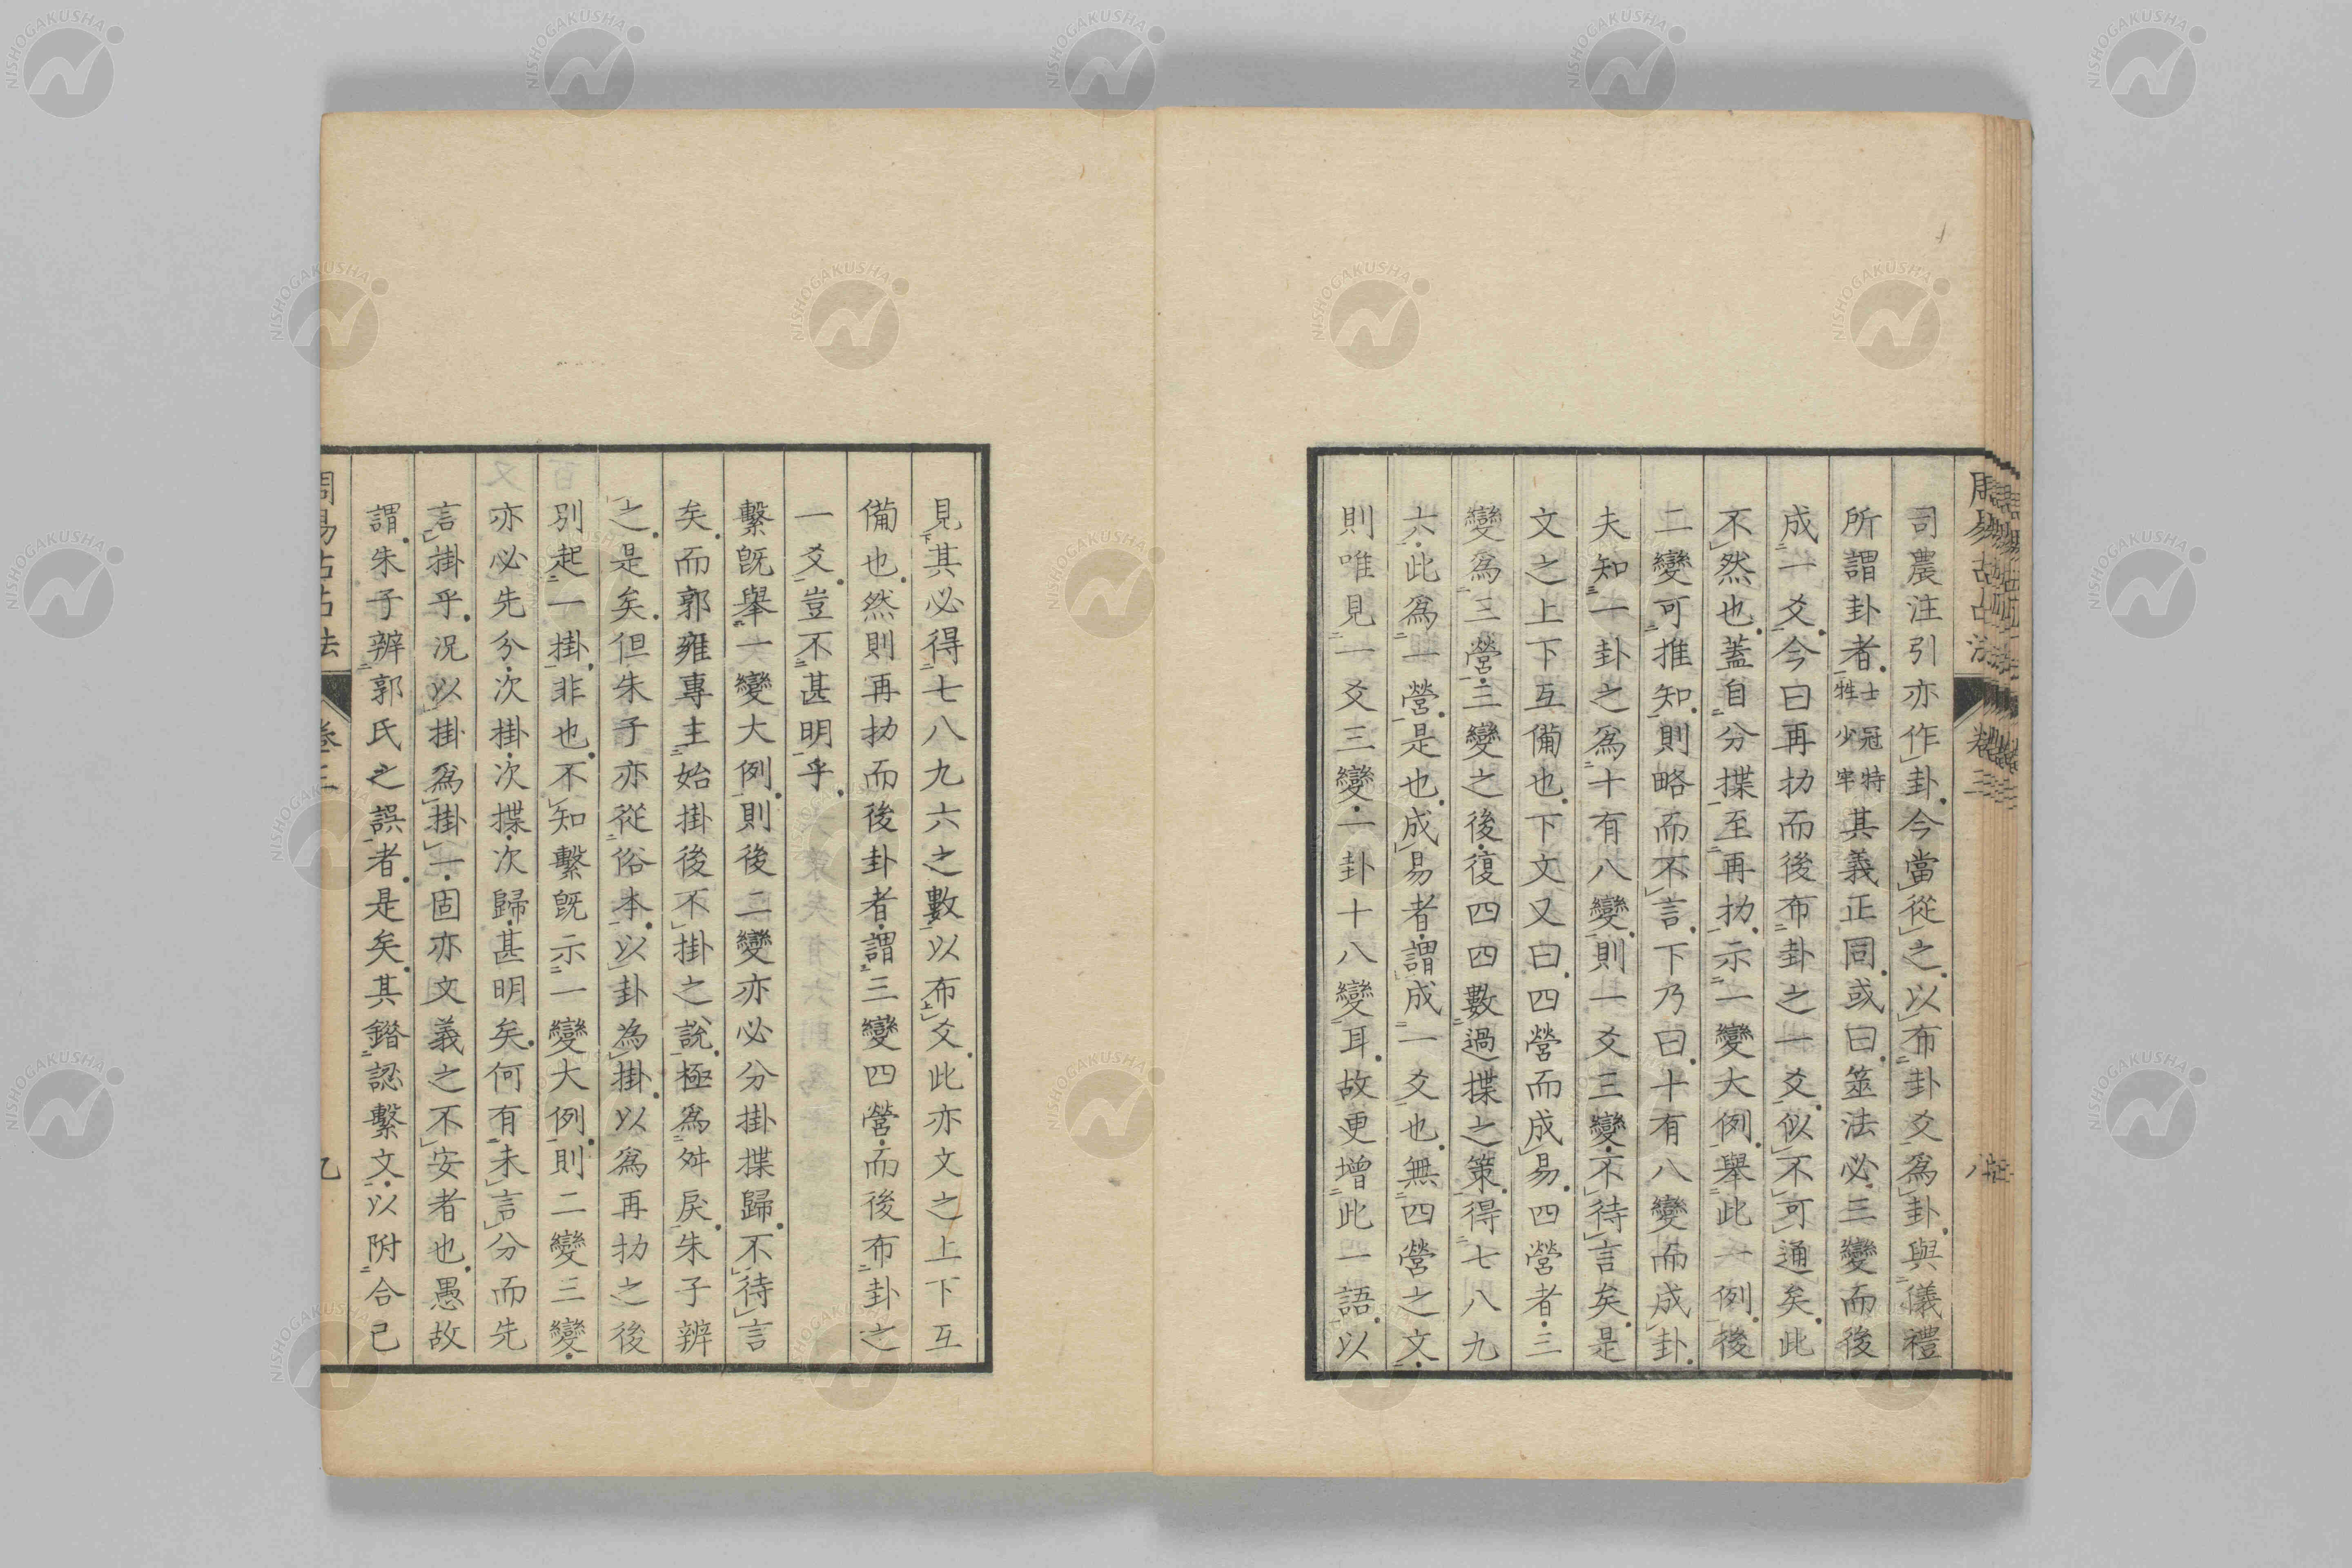 司農注引亦作卦今當從之以布卦爻爲卦與儀禮
所謂卦者士冠特牲少牢其義正同或曰筮法必三變而後
成一爻今曰再扐而後布卦之一爻似不可通矣此
不然也蓋自分揲至再扐示一變大例舉此一例後
二變可推知則略而不言下乃曰十有八變而成卦
夫知一卦之爲十有八變則一爻三變不待言矣是
文之上下互備也下文又曰四營而成易四營者三
變爲三營三變之後復四四數過揲之策得七八九
六此爲一營是也成易者謂成一爻也無四營之文
則唯見一爻三變一卦十八變耳故更增此一語以
周易古占法 卷三 八
見其必得七八九六之數以布爻此亦文之上下互
備也然則再扐而後卦者謂三變四營而後布卦之
一爻豈不甚明乎
繫既舉一變大例則後二變亦必分掛揲歸不待言
矣而郭雍專主始掛後不掛之說極爲舛戾朱子辨
之是矣但朱子亦從俗本以卦為掛以爲再扐之後
別起一掛非也不知繫既示一變大例則二變三變
亦必先分次掛次揲次歸甚明矣何有未言分而先
言掛乎況以掛爲掛一固亦文義之不安者也愚故
謂朱子辨郭氏之誤者是矣其錯認繫文以附合己
周易古占法 卷三 九
NISHOGAKUSHA